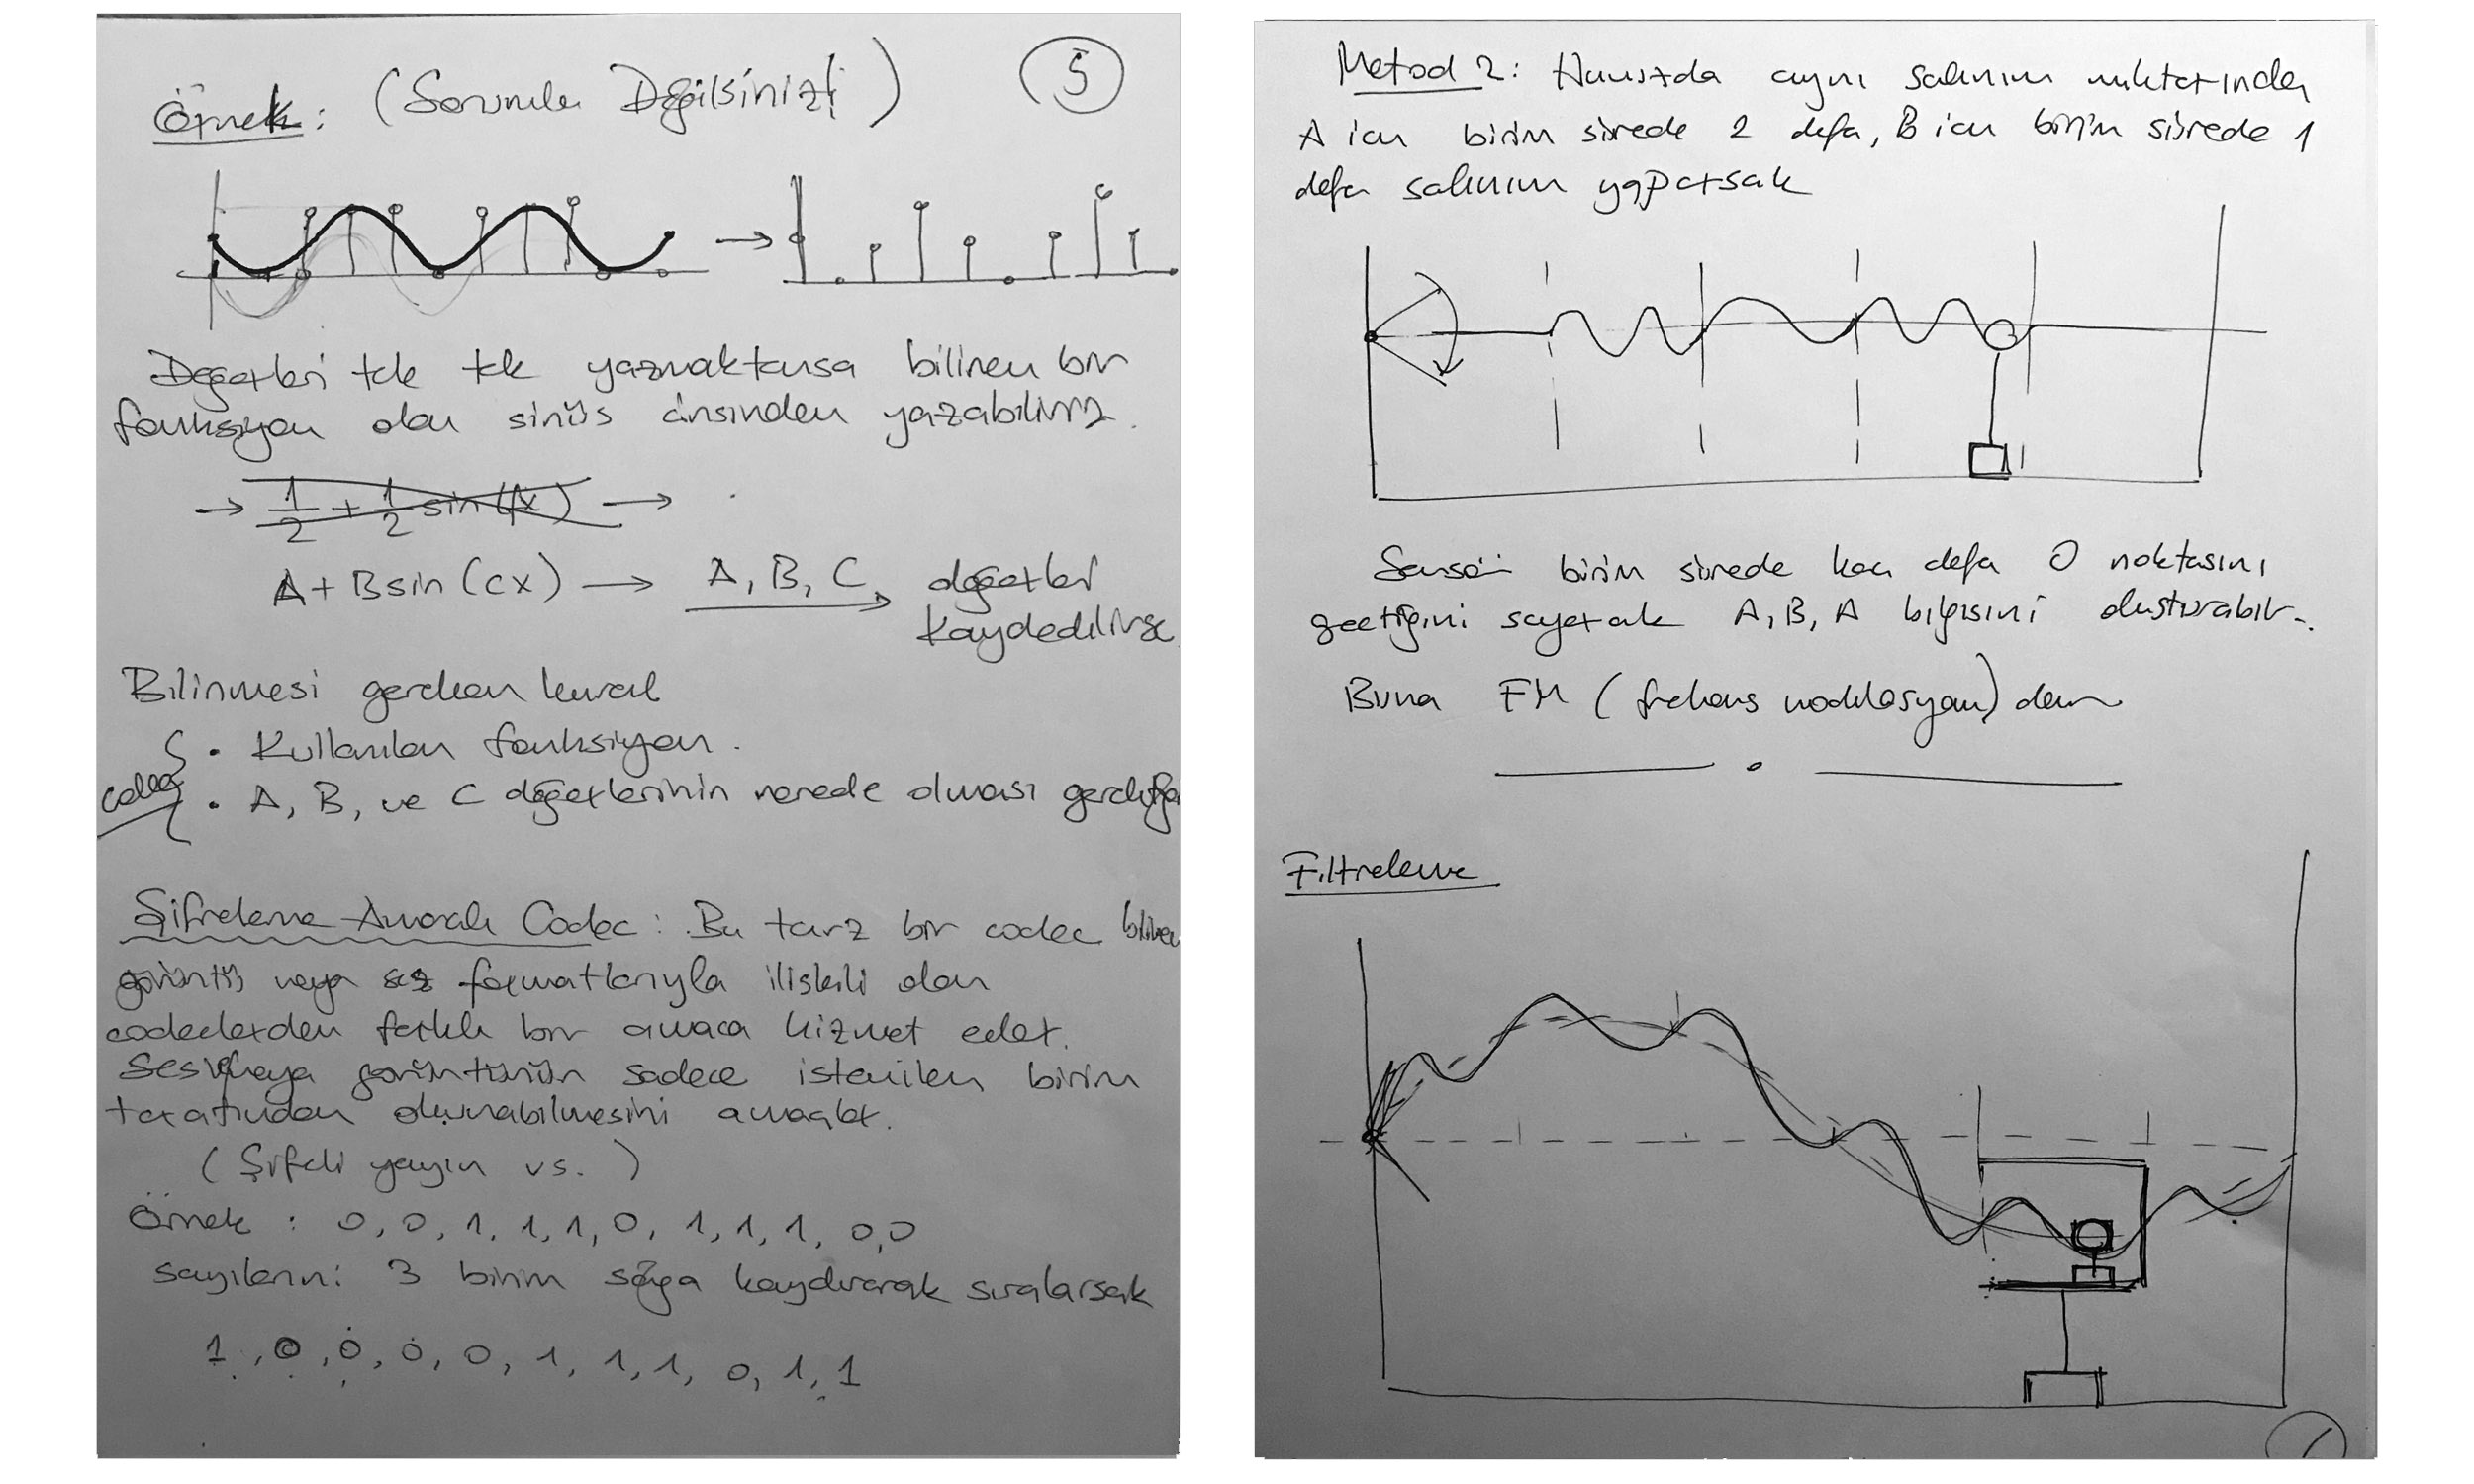 Örnek: (Sorumlu Değilsiniz!) 5
Değerleri tek tek yazmaktansa bilinen bir
fonksiyon olan sinüs cinsinden yazabiliriz.
→ 1/2 + 1/2 sin( x) →
A + B sin (cx) → A, B, C değerleri
kaydedilirse
Bilinmesi gereken kural
• Kullanılan fonksiyon.
codec • A, B, ve C değerlerinin nerede olması gerektiği
Şifreleme Amaçlı Codec: Bu tarz bir codec bilinen
görüntü veya ses formatlarıyla ilişkili olan
codeclerden farklı bir amaca hizmet eder.
Ses veya görüntünün sadece istenilen birim
tarafından okunabilmesini amaçlar.
(Şifreli yayın vs.)
Örnek : 0, 0, 1, 1, 1, 0, 1, 1, 1, 0, 0
sayılarını 3 birim sağa kaydırarak sıralarsak
1, 0, 0, 0, 0, 1, 1, 1, 0, 1, 1
Metod 2: Havuzda aynı salınım miktarından
A için birim sürede 2 defa, B için birim sürede 1
defa salınım yaparsak
Sensör birim sürede kaç defa 0 noktasını
geçtiğini sayarak A, B, A bilgisini oluşturabilir.
Buna FM (frekans modülasyon) denir
Filtreleme